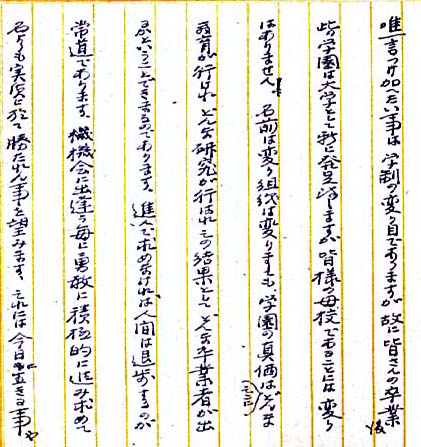 唯一言つけ加へたい事は学制の変り目でありますが故に皆さんの卒業後
皆学園は大学として新に発足致しますが皆様の母校であることには変り
はありません。名前は変り組織は変りましても学園の真価はどんな
教育が行はれどんな研究が行はれこの結果としてどんな卒業者が出
るかということできまるのであります。進んで求めなければ人間は退歩するのが
常道であります。機会に出逢う毎に勇敢に積極的に進み求めて
名よりも実質に於て勝たれん事を望みます。これには今日に生きる事や